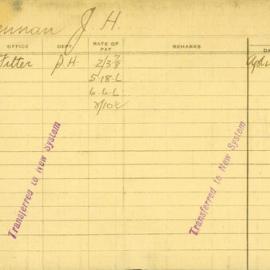 ennan J H.
OFFICE DEPT. RATE OF PAY REMARKS DA
Fitter P.H. 2/3 7/8
5.18.6
6.6.6
Transferred to New System
Transferred to New System